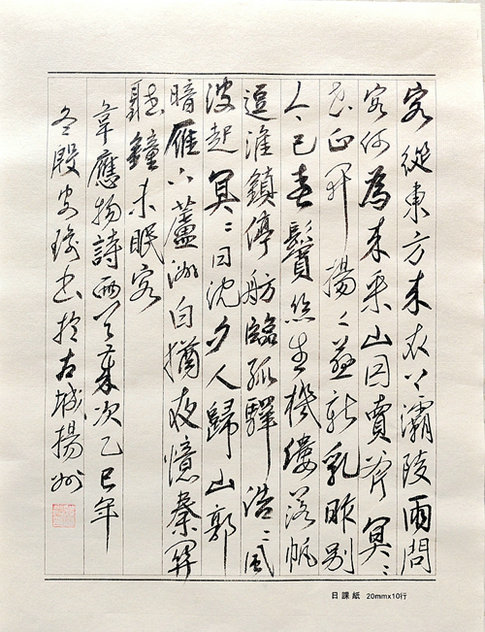 客從東方來衣上灞陵雨問
客何為來采山因賣斧冥々
花正開揚々燕新乳昨別
今已春鬢絲生機縷落帆
逗淮鎮停舫臨孤驛浩々風
波起冥々日沈夕人歸山郭
暗雁下蘆洲白獨夜憶秦關
聽鐘未眠客
韋應物詩兩首歲次乙巳年
冬殷書於古城揚州
日課紙 20mmx10行